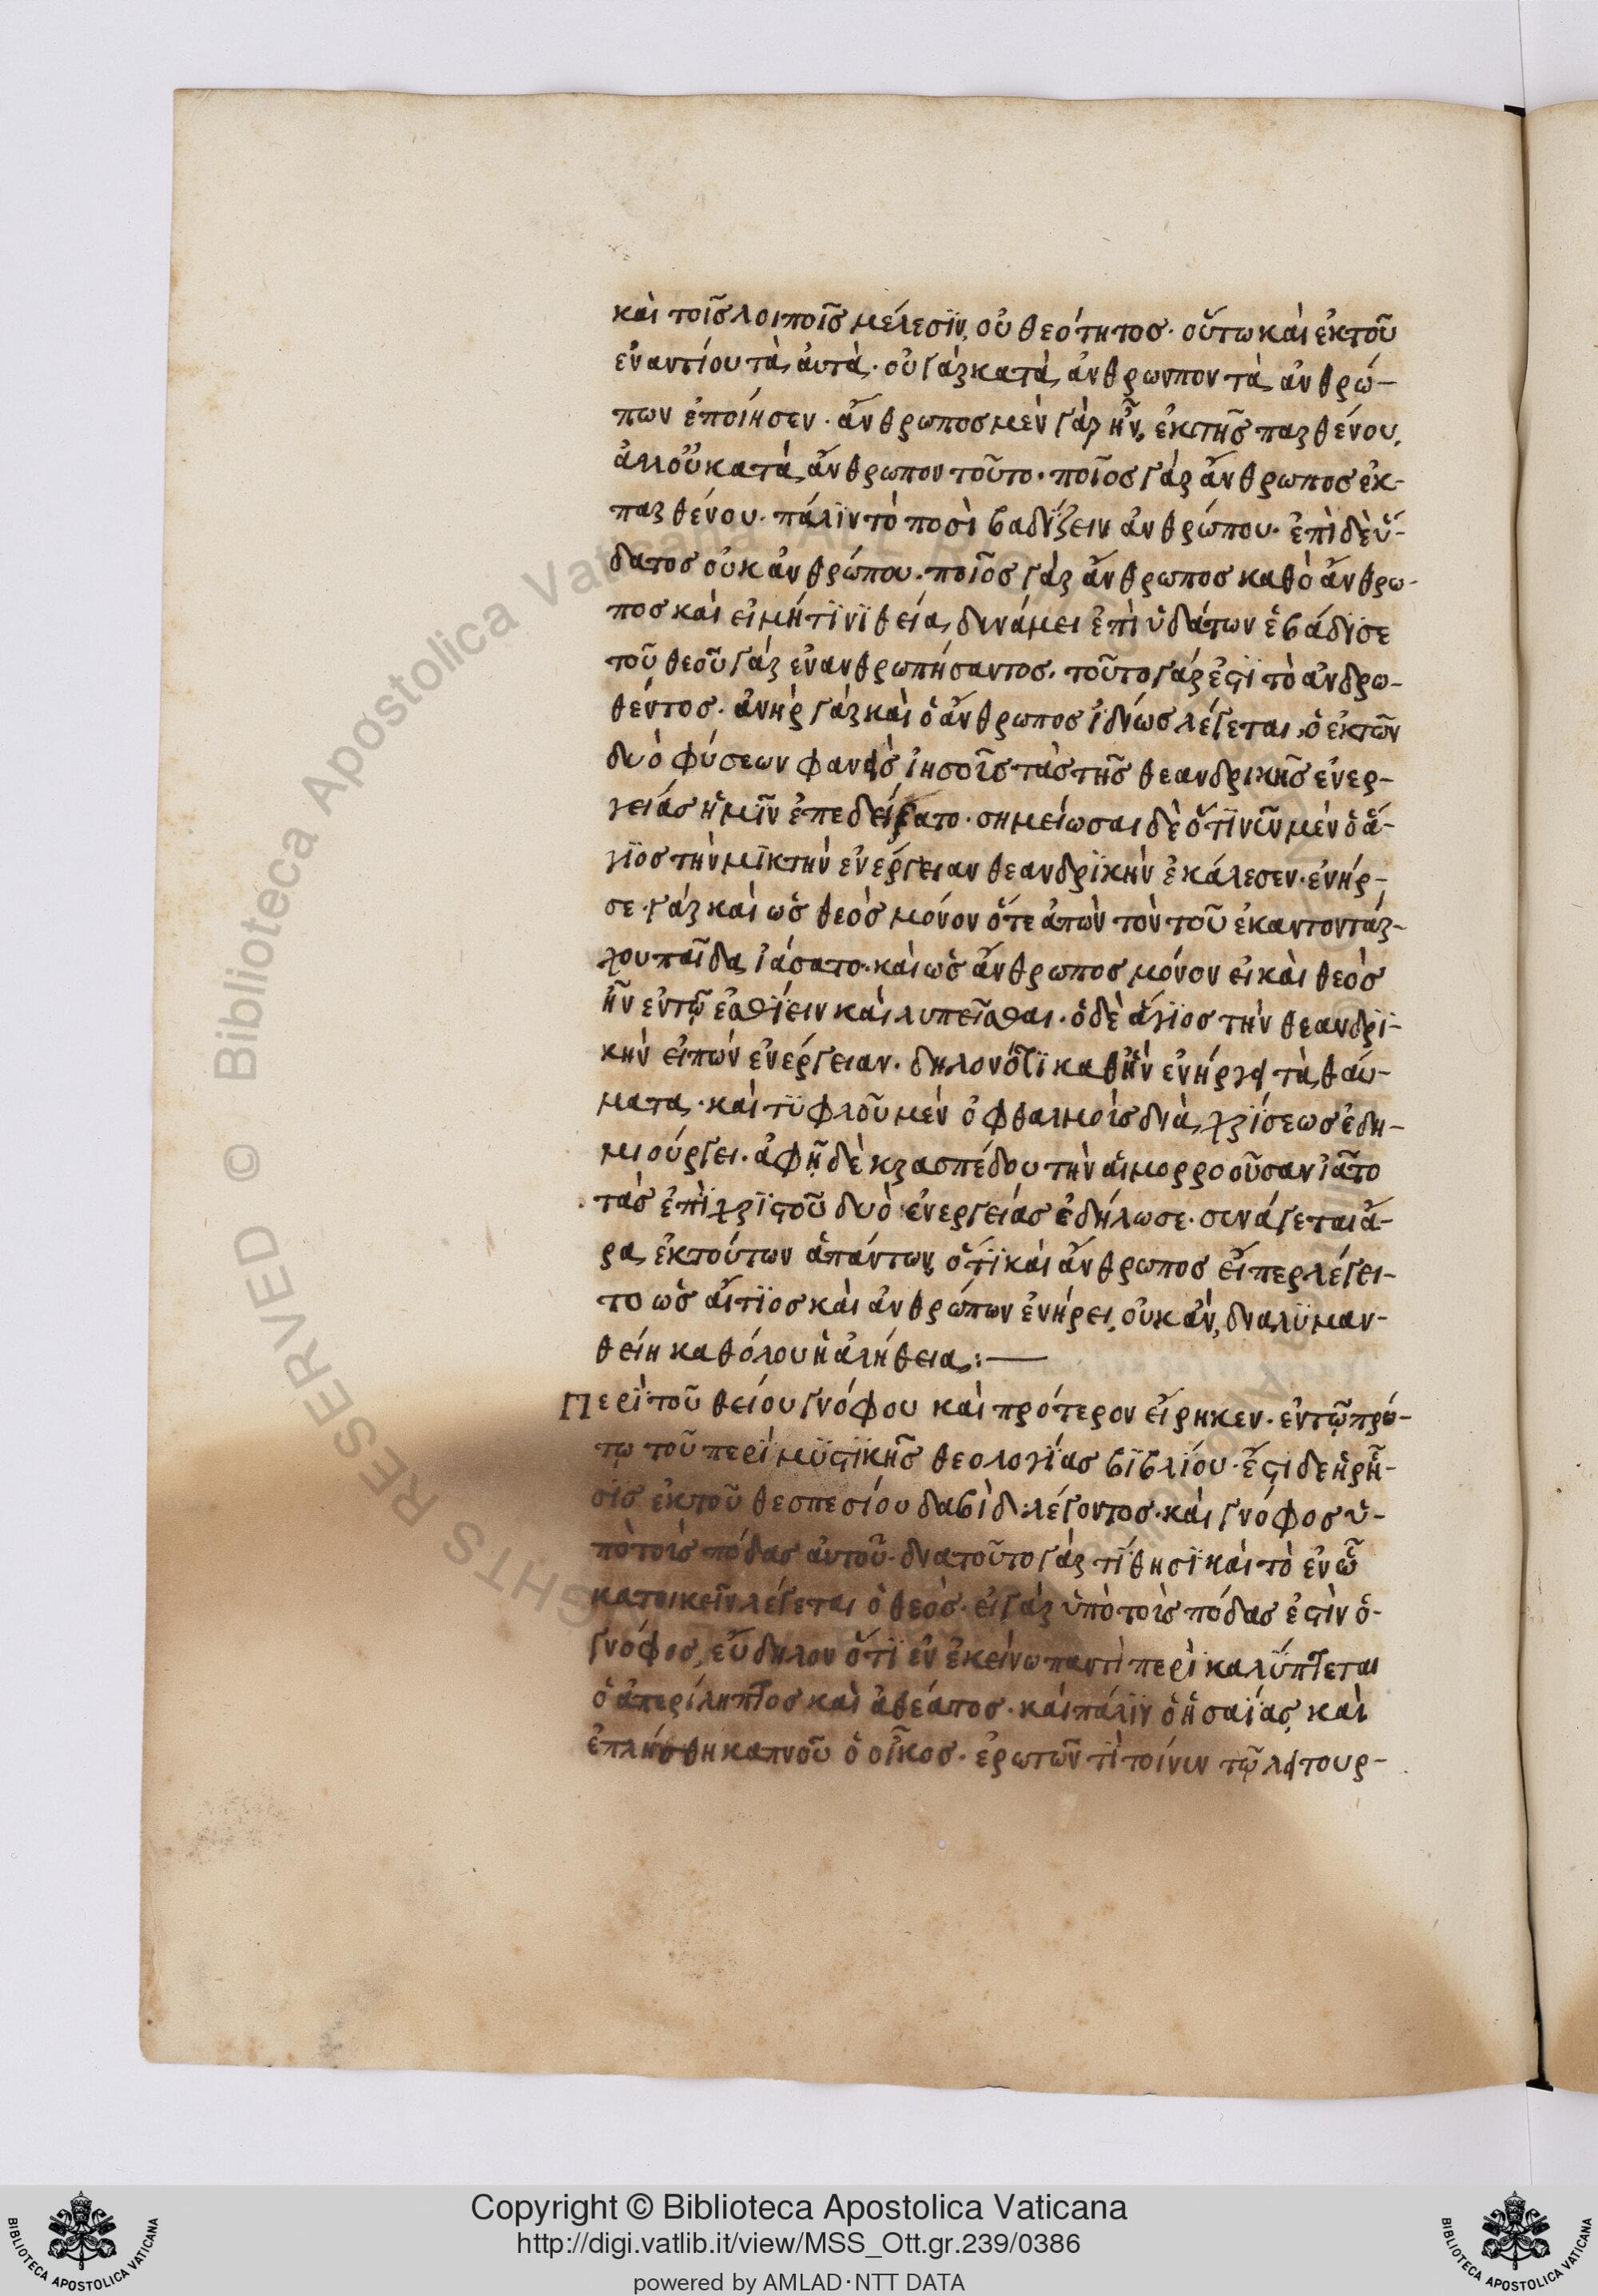 καὶ τοῖς λοιποῖς μέλεσϊν, οὐ θεότητος· οὕτω καὶ ἐκ τοῦ
ἐναντίου τὰ ἀυτὰ· οὐ γὰρ κατὰ ἀνθρωπον τὰ ἀνθρώ-
πων ἐποίησεν· ἄνθρωπος μὲν γὰρ ἦν, ἐκ τῆς παρθένου,
ἀλλ' οὐ κατὰ ἄνθρωπον τοῦτο· ποῖος γὰρ ἄνθρωπος ἐκ-
παρθένου· πάλϊν τὸ ποσὶ βαδΐζειν ἀνθρώπου· ἐπὶ δὲ ὕ-
δατος οὐκ ἀνθρώπου· ποῖος γὰρ ἄνθρωπος καθὸ ἄνθρω-
πος καὶ εἰ μή τϊνϊ θεία δυνάμει ἐπὶ ὑδάτων ἐβάδϊσε
τοῦ θεοῦ γὰρ ἐνανθρωπήσαντος· τοῦτο γάρ ἐστϊ τὸ ἀνδρω-
θέντος· ἀνὴρ γὰρ καὶ ὁ ἄνθρωπος ἰδϊίως λέγεται, ὁ ἐκ τῶν
δυὸ φύσεων φανεὶς ἰησοῦς τὰς τῆς θεανδρικῆς ἐνερ-
γείας ἡμῖν ἐπεδείξατο· σημείωσαι δὲ ὅτϊ νῦν μὲν ὁ ἅ-
γϊος τὴν μϊκτὴν ἐνέργειαν θεανδρϊκὴν ἐκάλεσεν· ἐνήρ-
σε· γὰρ καὶ ὡς θεὸς μόνον ὅτε ἀπὼν τὸν τοῦ ἑκαντοντάρ-
χου παῖδα ἰάσατο· καὶ ὡς ἄνθρωπος μόνον εἰ καὶ θεὸς
ἦν ἐν τῷ ἐσθΐειν καὶ λυπεῖσθαι· ὁ δὲ ἅγϊος τὴν θεανδρϊ-
κὴν εἰπὼν ἐνέργειαν· δηλονότϊ καθ' ἣν ἐνήργει τὰ θαύ-
ματα· καὶ τϋφλοῦ μὲν ὀφθαλμοὺς δϊὰ χρΐσεως ἐδη-
μιούργει· ἀφῇ δὲ κρασπέδου τὴν αἱμορροοῦσαν ἰᾶτο
τὰς ἐπὶ χρϊστοῦ δυὸ ἐνεργείας ἐδήλωσε· συνάγεται ἄ-
ρα ἐκ τούτων ἁπάντων, ὅτϊ καὶ ἄνθρωπος εἴπερ λέγει-
το ὡς αἴτϊος καὶ ἀνθρώπων ἐνήρει, οὐκ ἂν, δϊαλϋμαν-
θείη καθόλου ἡ ἀλήθεια:—
Περὶ τοῦ θείου γνόφου καὶ πρότερον εἴρηκεν· ἐν τῷ πρώ-
τῳ τοῦ περὶ μϋστϊκῆς θεολογϊίας βϊβλΐου· ἔστι δε ἡ ρῆ-
σϊς ἐκ τοῦ θεσπεσίου δαβὶδ· λέγοντος· καὶ γνόφος ὑ-
πὸ τοὺς πόδας ἀυτοῦ· δϊα τοῦτο γὰρ τΐθησϊ καὶ τὸ ἐν ᾧ
κατοικεῖν λέγεται ὁ θεὸς· εἰ γὰρ ὑπὸ τοὺς πόδας ἐστὶν ὁ-
γνόφος, εὔδηλον ὅτϊ ἐν ἐκείνω παντὶ περϊκαλύπτεται
ὁ ἀπερίληπτος καὶ ἀθέατος· καὶ πάλϊν ὁ ἡσαΐας καὶ
ἐπλήσθη καπνοῦ ὁ οἶκος· ἐρωτῶν τὶ τοίνυν τῷ λειτουρ-
Copyright © Biblioteca Apostolica Vaticana
http://digi.vatlib.it/view/MSS_Ott.gr.239/0386
powered by AMLAD·NTT DATA